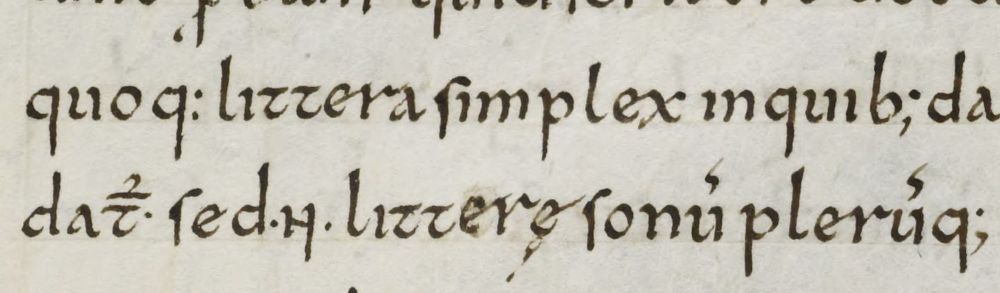 quoq: littera simplex inquib; da
dat̄᷑· sed·N·litterę sonū plerūq;